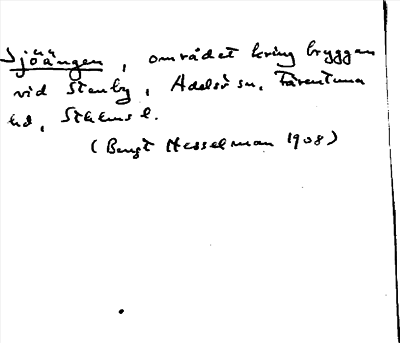 Sjöängen, området kring bryggan
vid Stenby, Adelsö sn, Färentuna
hd, Sthlms l.
(Bengt Hesselman 1908)